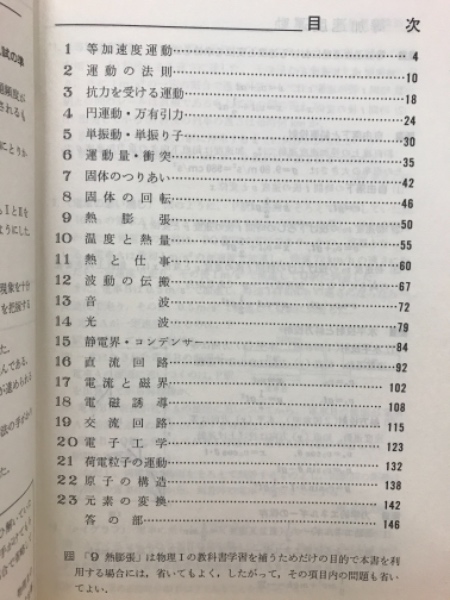 目 次
1 等加速度運動 4
2 運動の法則 10
3 抗力を受ける運動 18
4 円運動・万有引力 24
5 単振動・単振り子 30
6 運動量・衝突 35
7 固体のつりあい 42
8 固体の回転 46
9 熱膨張 50
10 温度と熱量 55
11 熱と仕事 60
12 波動の伝搬 67
13 音波 72
14 光波 79
15 静電界・コンデンサー 84
16 直流回路 92
17 電流と磁界 102
18 電磁誘導 108
19 交流回路 115
20 電子工学 123
21 荷電粒子の運動 132
22 原子の構造 138
23 元素の変換 142
答の部 146
「9 熱膨張」は物理Ⅰの教科書学習を補うためだけの目的で本書を利
用する場合には，省いてもよく，したがって，その項目内の問題も省い
てよい．